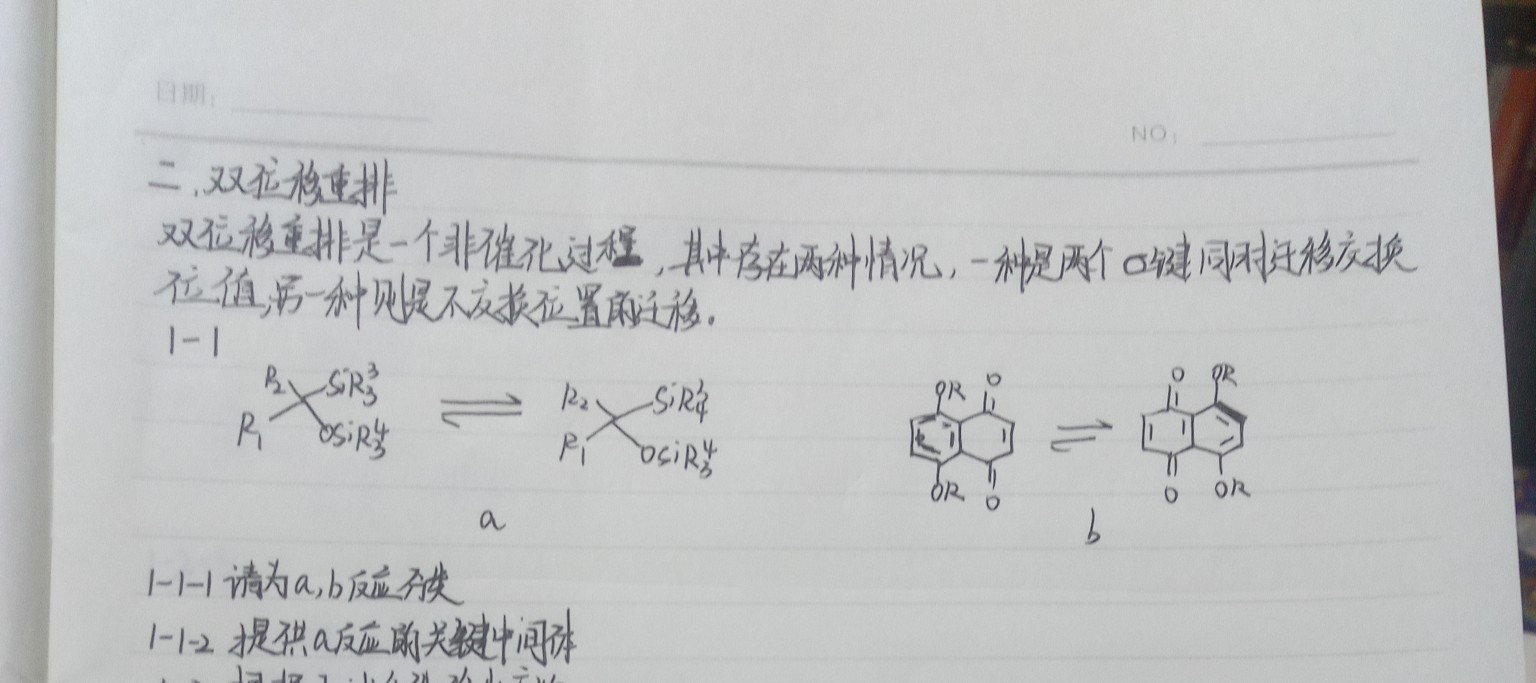 日期:
NO:
二.双位移重排
双位移重排是一个非催化过程,其中存在两种情况,一种是两个σ键同时迁移交换
位值,另一种则是不交换位置的迁移.
1-1
R2 SiR₃³ R2 SiR OR O O OR
R1 OSiR₃⁴ R1 OSiR₃⁴ OR O O OR
a b
1-1-1 请为a,b反应
1-1-2 提供a反应的关键中间体